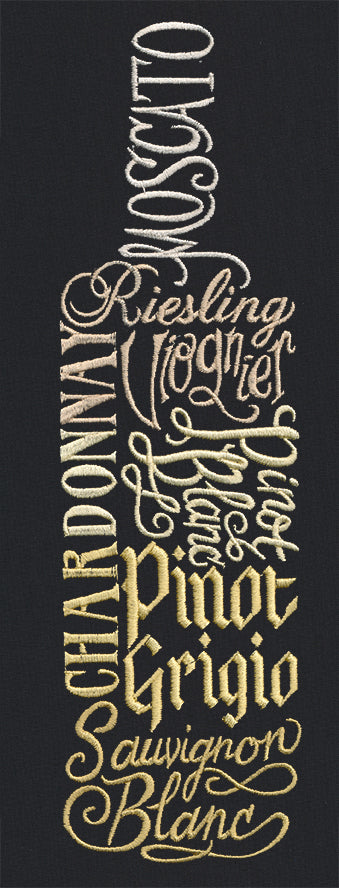 MOSCATO
Riesling
Viognier
CHARDONNAY
Pinot
Blanc
Pinot
Grigio
Sauvignon
Blanc